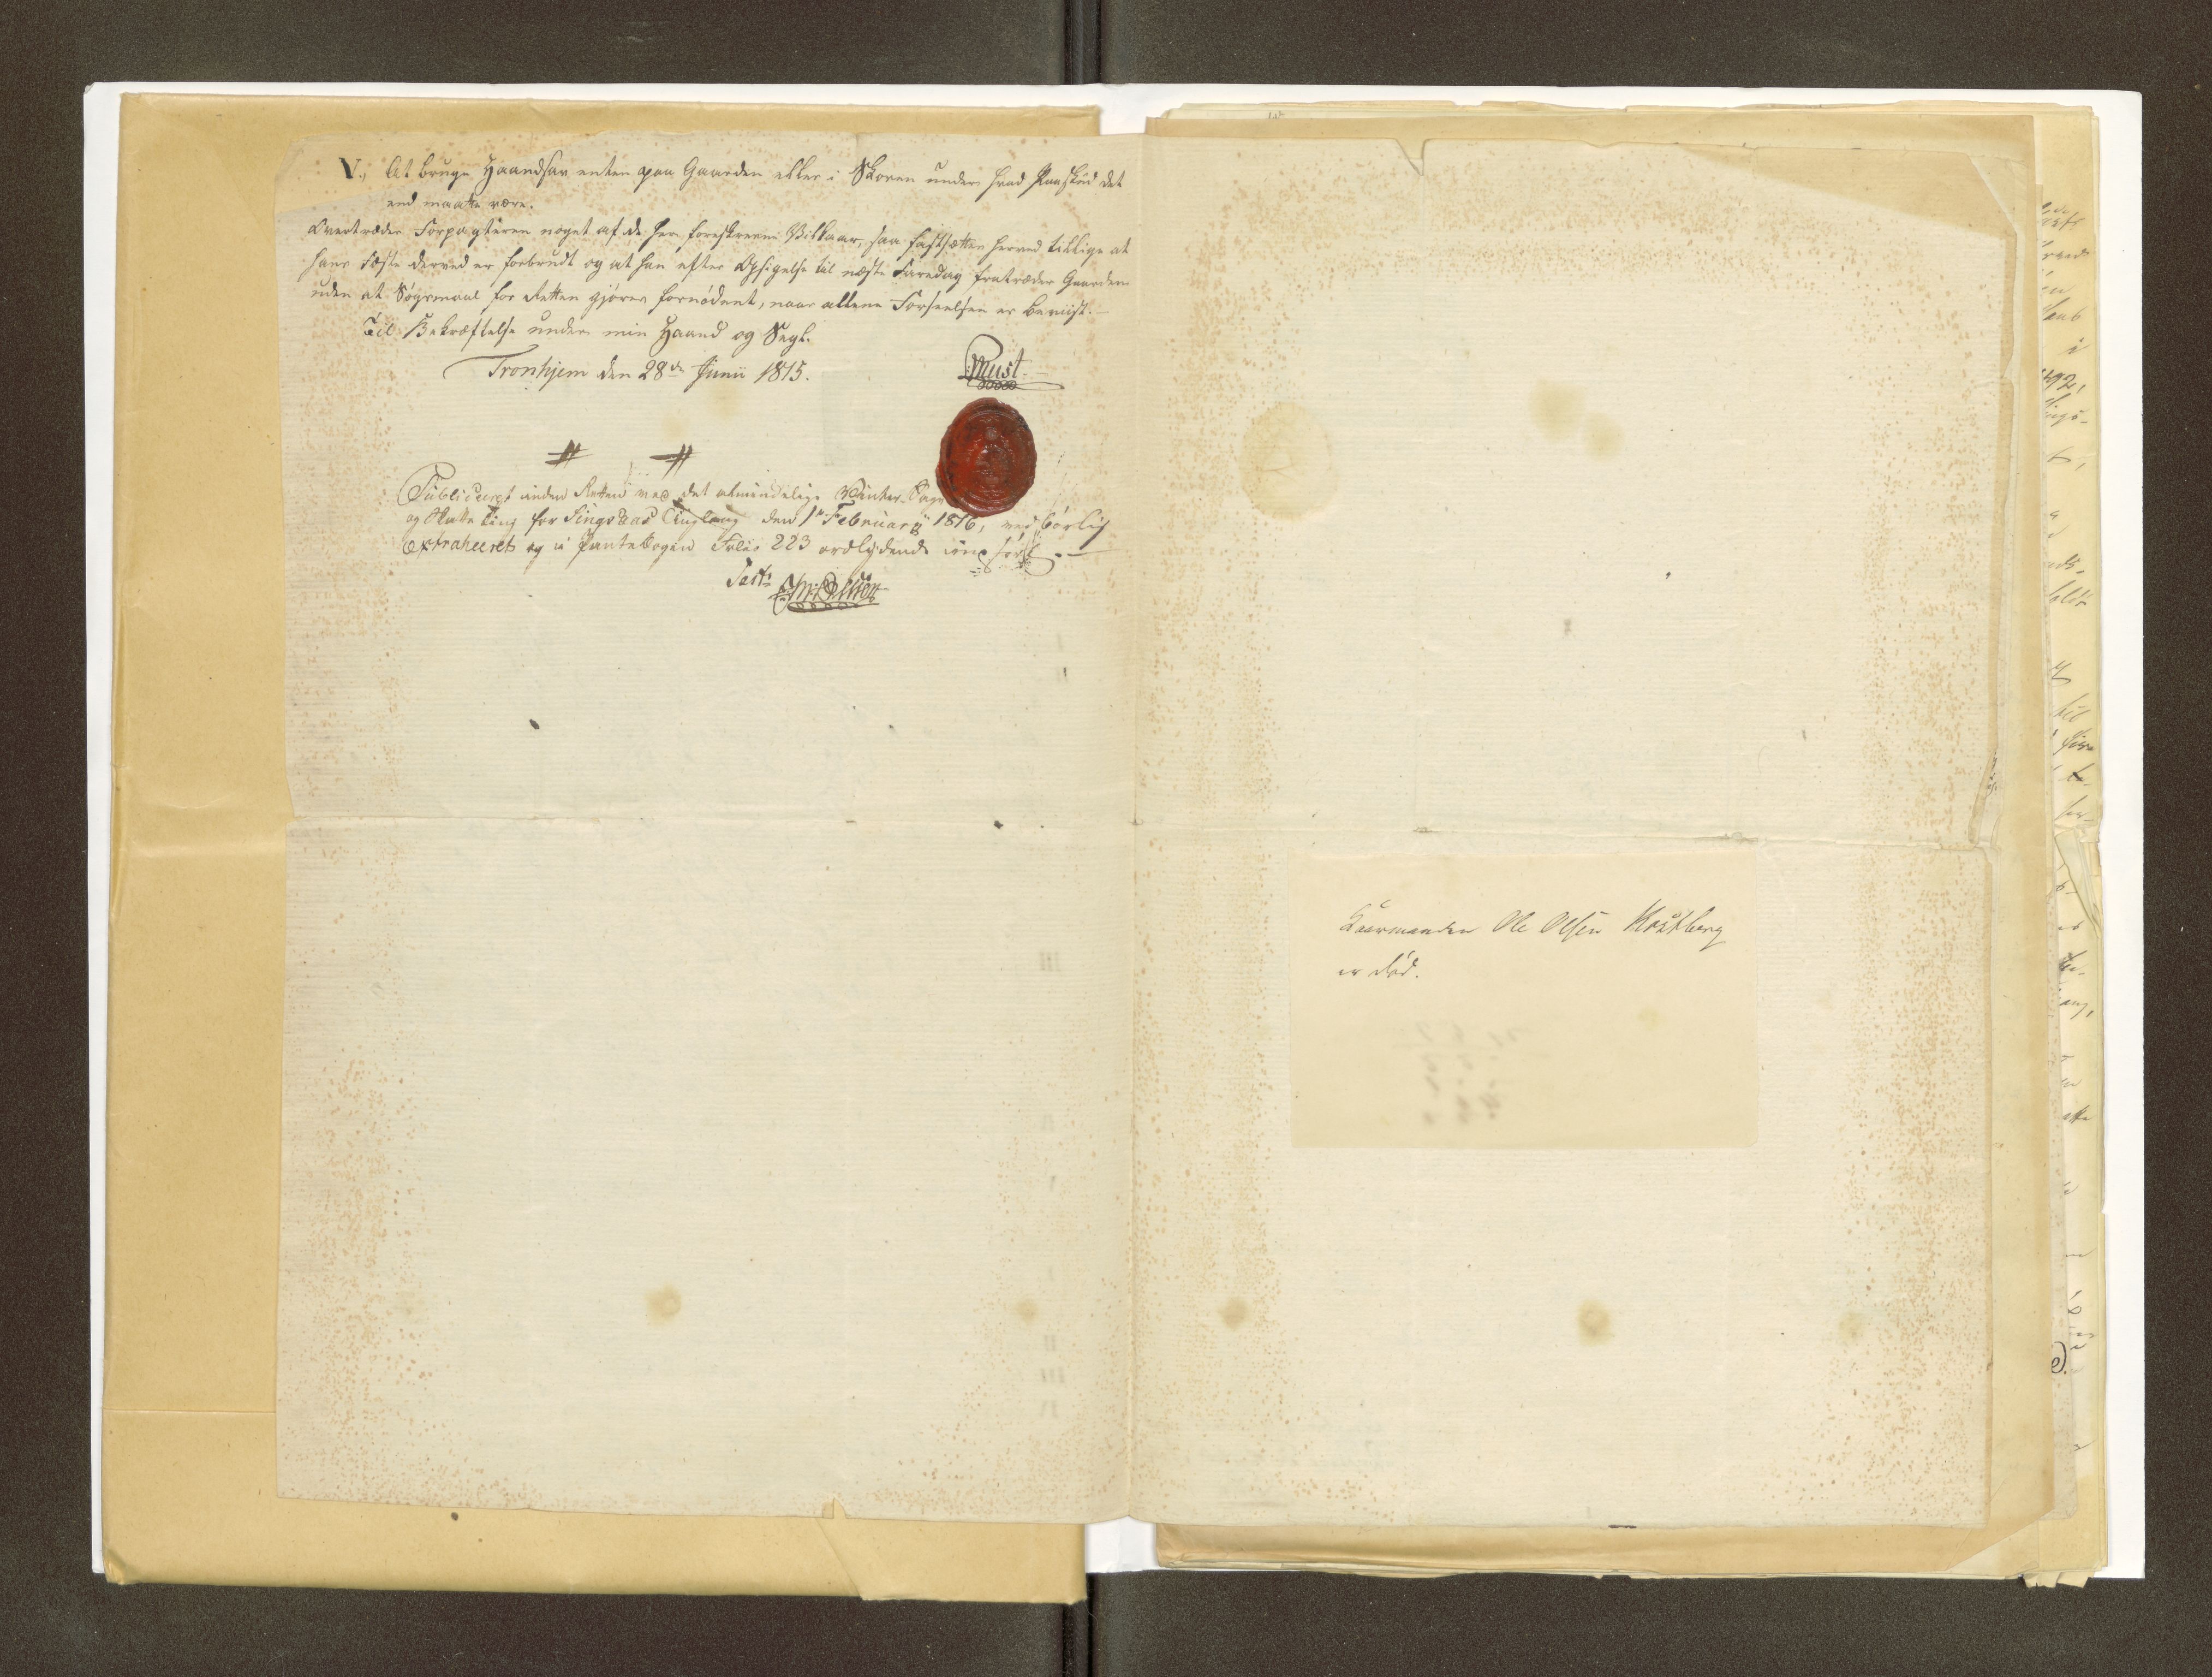 V., At bruge Haandsav enten paa Gaarden eller i Skoven under hvad Paaskud det
end maatte være.
Overtræder Forpagteren noget af de her foreskrevne Vilkaar, saa fastsættes herved tillige at
hans Fæste derved er forbrudt og at han efter Opsigelse til næste Faredag fratræder Gaarden
uden at Søgsmaal for Retten gjøres fornødent, naar allene Forseelsen er beviist.—
Til Bekræftelse under min Haand og Segl.
Tronhjem den 28de Junii 1815.
Must
Publiceret inden Retten ved det almindelige Vinter-Sage
og Skatte Ting for Singsaas Tinglaug den 1te Februarii 1816, ved børlig
Extraheeret og i Pantebogen Folio 223 ordlydende indført.—
Test:
Kaarmanden Ole Olsen Kostberg
er død.